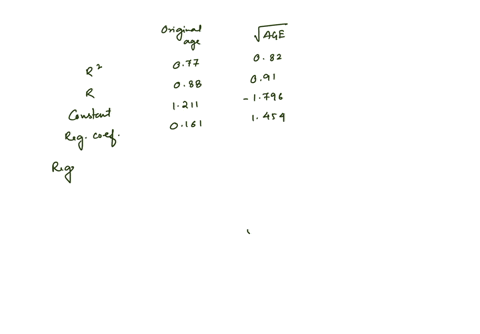 Original age √AGE
R² 0.77 0.82
R 0.88 0.91
Constant 1.211 -1.796
Reg. coef. 0.161 1.454
Reg